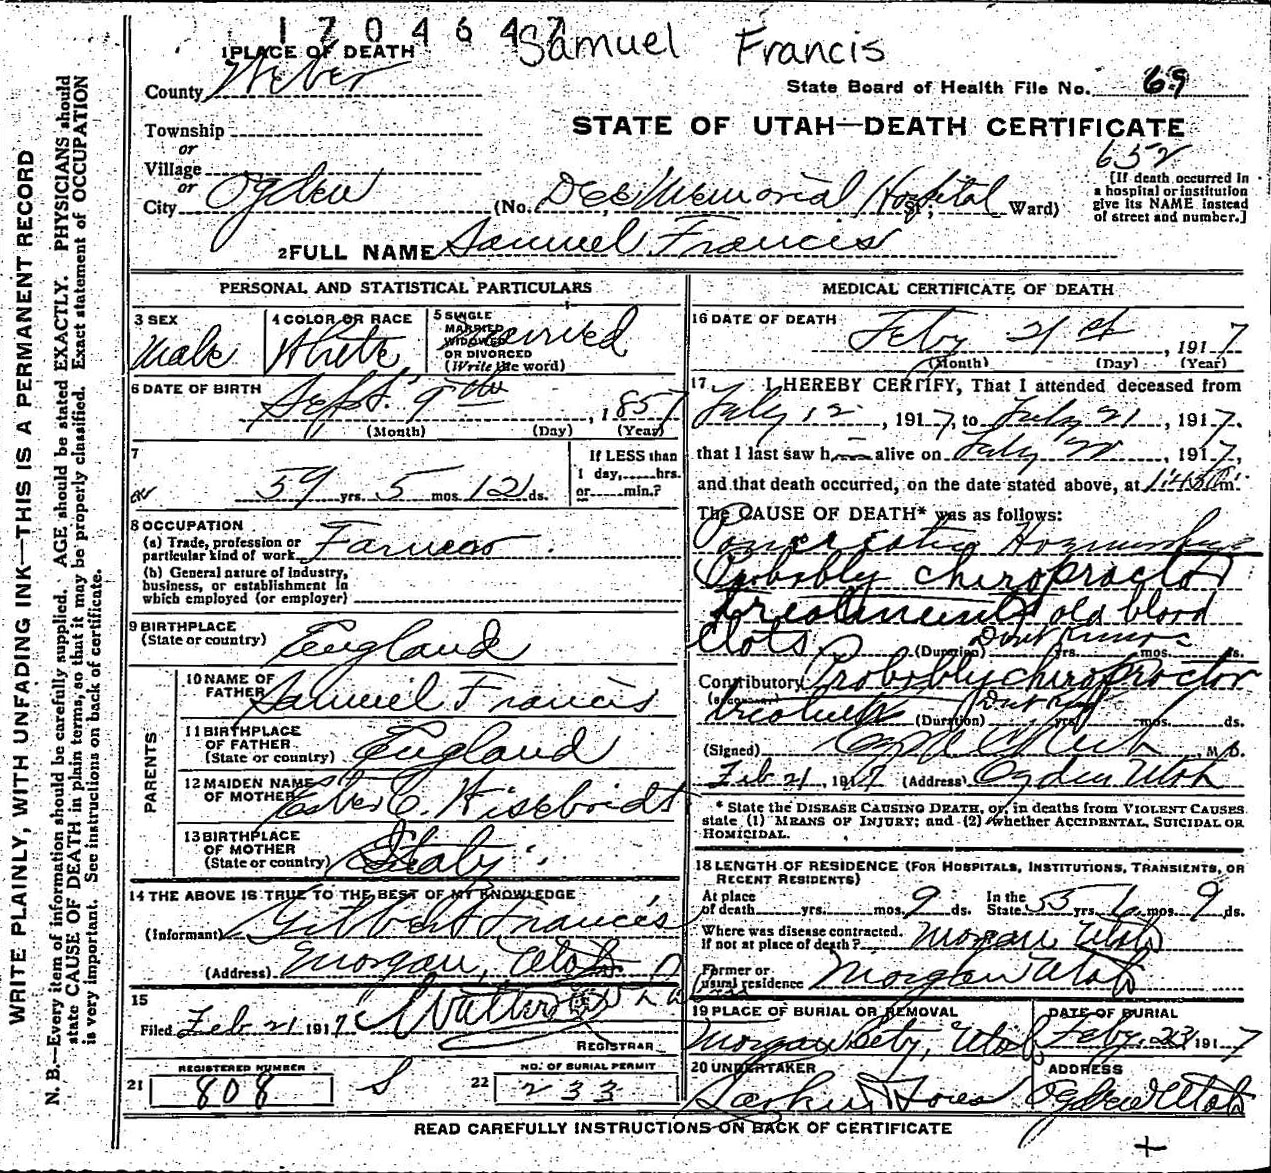 1704647
Samuel Francis
1 PLACE OF DEATH
County Weber
State Board of Health File No. 69
Township
or
STATE OF UTAH—DEATH CERTIFICATE
652
Village
or
[If death occurred in
a hospital or institution
give its NAME instead
of street and number.]
City Ogden (No. Dee Memorial Hospital Ward)
2 FULL NAME Samuel Francis
PERSONAL AND STATISTICAL PARTICULARS
3 SEX
Male
4 COLOR OR RACE
White
5 SINGLE
MARRIED
WIDOWED
OR DIVORCED
(Write the word)
Married
6 DATE OF BIRTH
Sept. 9th, 1857
(Month) (Day) (Year)
7
If LESS than
1 day, hrs.
or min.?
59 yrs. 5 mos. 12 ds.
8 OCCUPATION
(a) Trade, profession or
particular kind of work Farmer
(b) General nature of industry,
business, or establishment in
which employed (or employer)
9 BIRTHPLACE
(State or country) England
PARENTS
10 NAME OF
FATHER Samuel Francis
11 BIRTHPLACE
OF FATHER
(State or country) England
12 MAIDEN NAME
OF MOTHER
13 BIRTHPLACE
OF MOTHER
(State or country) Italy
14 THE ABOVE IS TRUE TO THE BEST OF MY KNOWLEDGE
(Informant) Gilbert Francis
(Address) Morgan, Utah
15
Filed Feb 21 1917 Walter
REGISTRAR
REGISTERED NUMBER
21 808 S
NO. OF BURIAL PERMIT
22 233
MEDICAL CERTIFICATE OF DEATH
16 DATE OF DEATH
Feby 21st, 1917
(Month) (Day) (Year)
17 I HEREBY CERTIFY, That I attended deceased from
12, 1917, to 21, 1917.
that I last saw h alive on, 1917,
and that death occurred, on the date stated above, at m.
The CAUSE OF DEATH* was as follows:
Probably chiropractor
treatments old blood
clots (Duration) Dont Know yrs. mos. ds.
Contributory Probably chiropractor
(Duration) yrs. mos. ds.
(Signed) M.D.
Feb 21, 1917 (Address) Ogden Utah
* State the DISEASE CAUSING DEATH, or, in deaths from VIOLENT CAUSES
state (1) MEANS OF INJURY; and (2) whether ACCIDENTAL, SUICIDAL OR
HOMICIDAL.
18 LENGTH OF RESIDENCE (FOR HOSPITALS, INSTITUTIONS, TRANSIENTS, OR
RECENT RESIDENTS)
At place
of death yrs. mos. 9 ds. In the
State 55 yrs. 6 mos. 9 ds.
Where was disease contracted.
If not at place of death? Morgan Utah
Former or
usual residence Morgan Utah
19 PLACE OF BURIAL OR REMOVAL
Morgan City, Utah
DATE OF BURIAL
Feby. 23 1917
20 UNDERTAKER
ADDRESS
Ogden Utah
READ CAREFULLY INSTRUCTIONS ON BACK OF CERTIFICATE
WRITE PLAINLY, WITH UNFADING INK—THIS IS A PERMANENT RECORD
N. B.—Every item of information should be carefully supplied. AGE should be stated EXACTLY. PHYSICIANS should
state CAUSE OF DEATH in plain terms, so that it may be properly classified. Exact statement of OCCUPATION
is very important. See instructions on back of certificate.